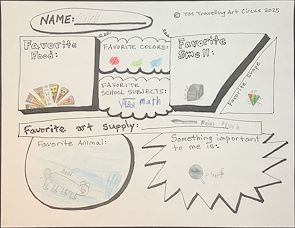 NAME:
© TM Travelling Art Circus 2025
Favorite
Food:
FAVORITE COLORS:
Favorite
Smell:
FAVORITE
SCHOOL SUBJECTS:
math
Favorite Shape
Favorite art supply:
Favorite Animal:
Something important
to me is: